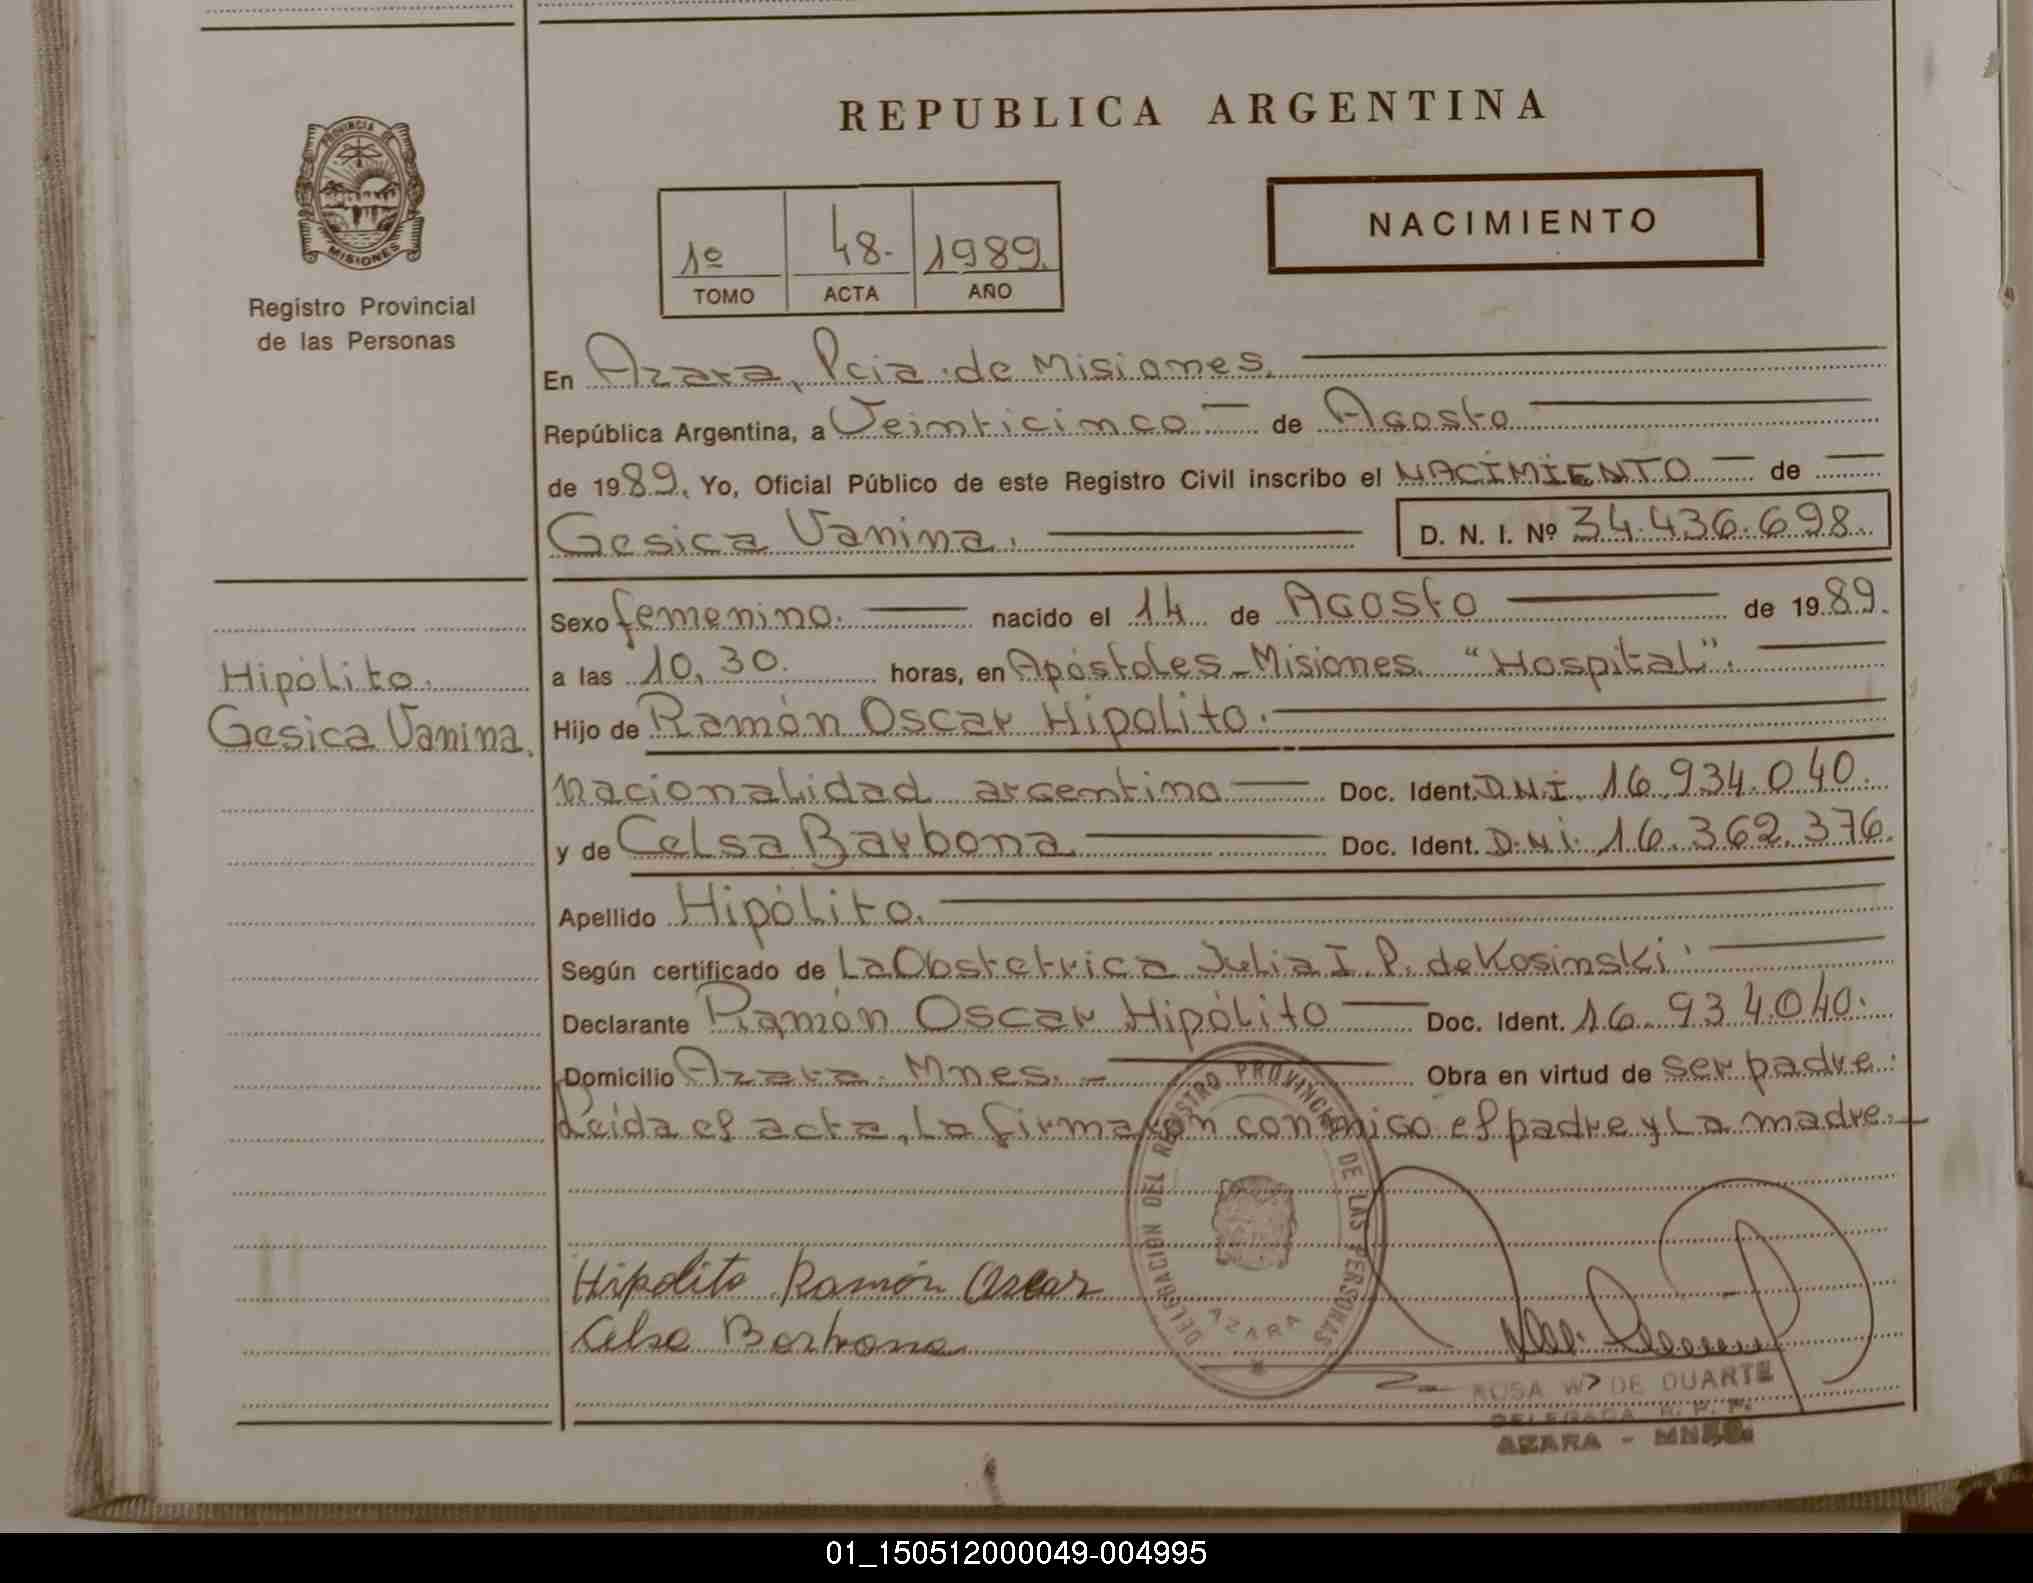 REPUBLICA ARGENTINA
PROVINCIA DE
MISIONES
Registro Provincial
de las Personas
1º 48. 1989.
TOMO ACTA AÑO
NACIMIENTO
En Azara, Pcia. de Misiones.
República Argentina, a Veinticinco de Agosto
de 1989. Yo, Oficial Público de este Registro Civil inscribo el NACIMIENTO de
Gesica Vanina. D. N. I. Nº 34.436.698.
Sexo femenino. nacido el 14 de Agosto de 1989.
Hipólito.
Gesica Vanina.
a las 10,30. horas, en Apóstoles - Misiones. "Hospital".
Hijo de Ramón Oscar Hipolito.
nacionalidad argentina Doc. Ident. D.N.I. 16.934.040.
y de Celsa Barbona Doc. Ident. D.N.I. 16.362.376.
Apellido Hipólito.
Según certificado de La Obstetrica Julia I. P. de Kosinski.
Declarante Ramón Oscar Hipólito Doc. Ident. 16.934.040.
Domicilio Azara. Mnes. - Obra en virtud de ser padre.
Leída el acta, la firmaron conmigo el padre y la madre.
DELEGACION DEL REGISTRO PROVINCIAL DE LAS PERSONAS
AZARA
Hipolito Ramón Oscar
Celsa Barbona
ROSA W. DE DUARTE
DELEGADA R. P. P.
AZARA - MNES.
01_150512000049-004995